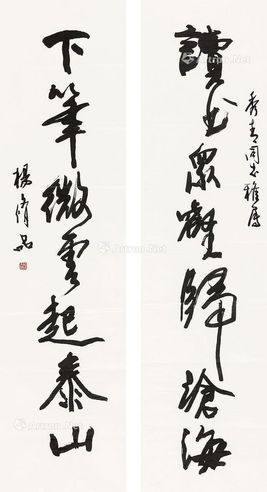 秀同志雅屬
讀書眾壑歸滄海
下筆微雲起泰山
楊
Artron.Net